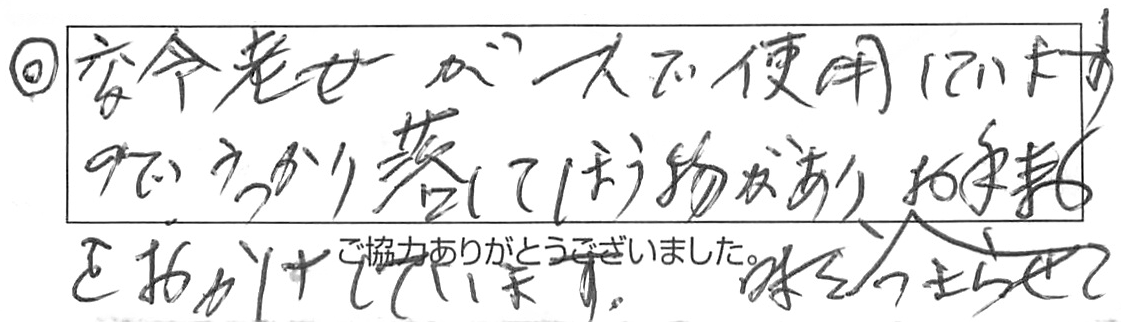 ◎ 高令老女が一人で使用しています
のでうっかり落してしまう物があり お手数
をおかけしています. 時々つまらせて
ご協力ありがとうございました。